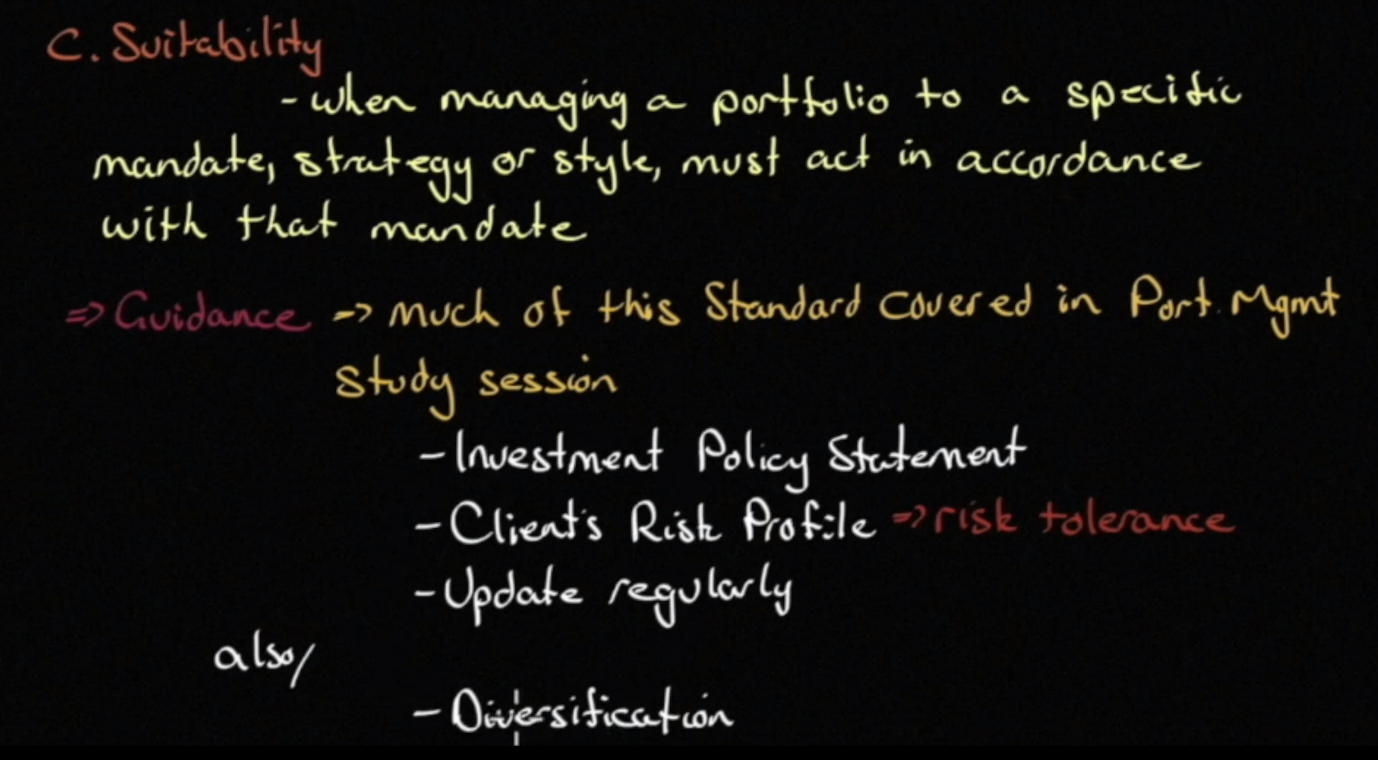 C. Suitability
- when managing a portfolio to a specific
mandate, strategy or style, must act in accordance
with that mandate
=> Guidance -> much of this Standard covered in Port. Mgmt
Study session
- Investment Policy Statement
- Client's Risk Profile => risk tolerance
- Update regularly
also/
- Diversification